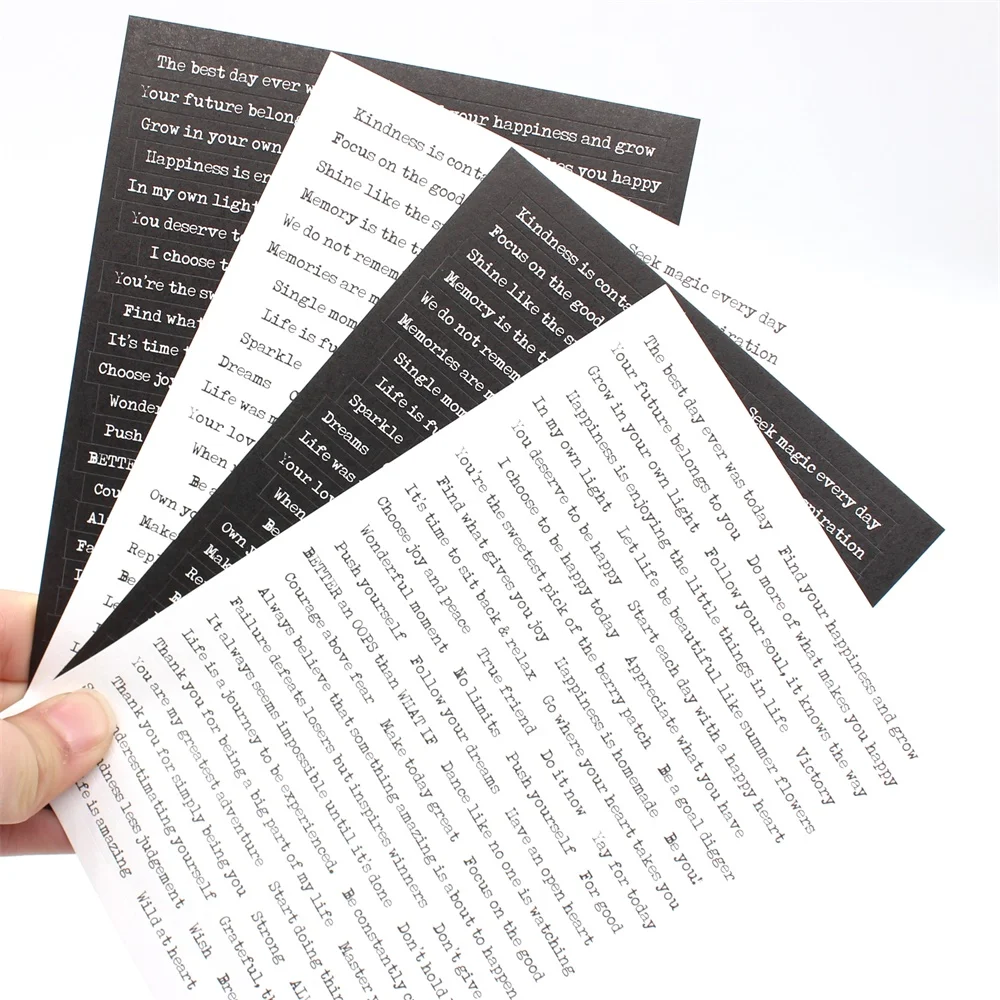 The best day ever w your happiness and grow
Your future belong kes you happy
Grow in your own
Happiness is en
In my own light
You deserve to
I choose t
You're the sw
Find what
It's time t
Choose joy
Wonder
Push
BETTE
Cou
Al
Fa
Kindness is conta Seek magic every day
Focus on the good piration
Shine like the s
Memory is the t
We do not remem
Memories are m
Single mom
Life is fu
Sparkle
Dreams
Life was m
Your lov
When y
Be a
Own yo
Make
Repl
Be
Le
Kindness is conta Seek magic every day
Focus on the good piration
Shine like the s
Memory is the t
We do not remem
Memories are m
Single mom
Life is f
Sparkle
Dreams
Life was
Your lo
When
Be
Own
Mak
Re
The best day ever was today Find your happiness and grow
Your future belongs to you Do more of what makes you happy
Grow in your own light Follow your soul, it knows the way
Happiness is enjoying the little things in life Victory
In my own light Let life be beautiful like summer flowers
You deserve to be happy Start each day with a happy heart
I choose to be happy today Appreciate what you have
You're the sweetest pick of the berry patch Be a goal digger
Find what gives you joy Happiness is homemade Be you!
It's time to sit back & relax Go where your heart takes you
Choose joy and peace True friend Do it now Yay for today
Wonderful moment No limits Push yourself For good
Push yourself Follow your dreams Have an open heart
BETTER an OOPS than WHAT IF Dance like no one is watching
Courage above fear Make today great Focus on the good
Always believe that something amazing is about to happen
Failure defeats losers but inspires winners Don't give
It always seems impossible until it's done Don't hold
Life is a journey to be experienced. Be constantly c
Thank you for being a big part of my life Master
You are my greatest adventure Start doing thin
Thank you for simply being you Strong AL
nderestimating yourself Grateful, th
ndness less judgement Wish Bre
fe is amazing Wild at heart